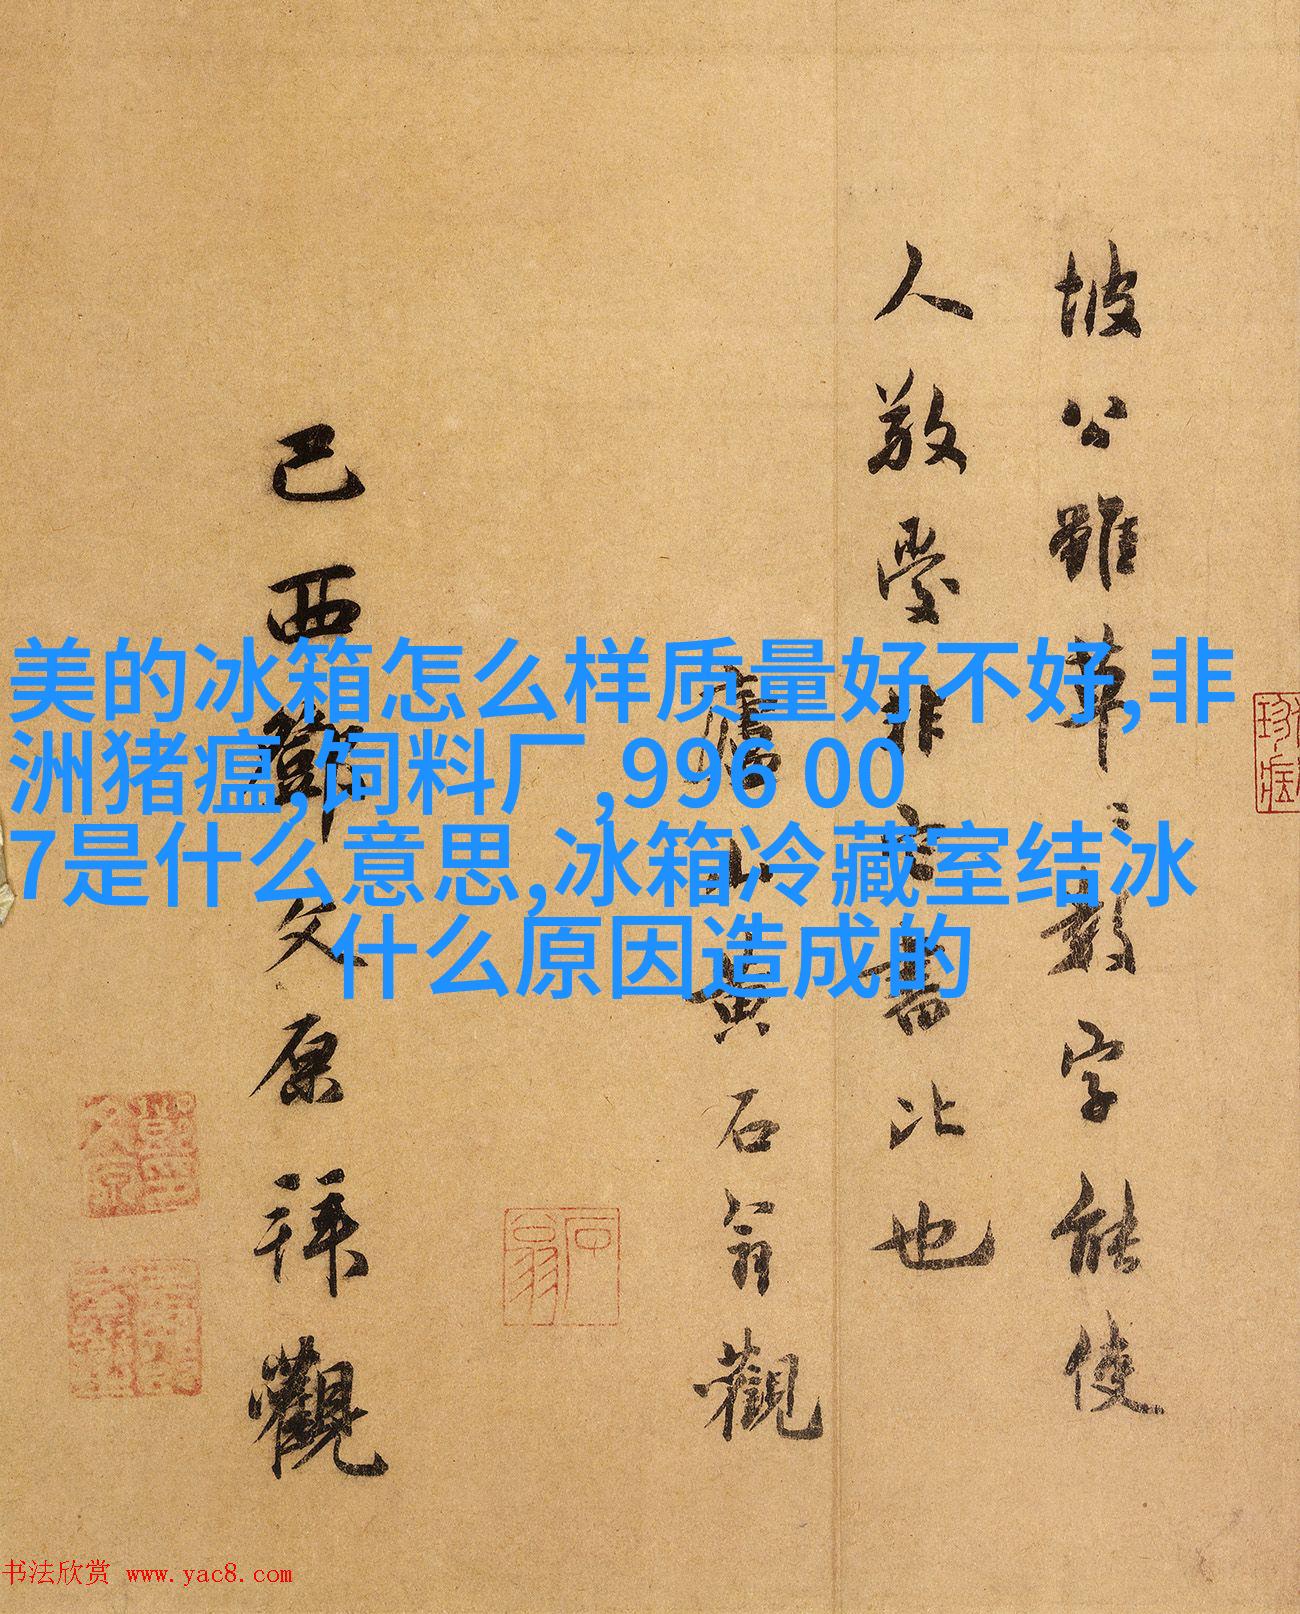 美的冰箱怎么样质量好不好,非
洲猪瘟,饲料厂 ,996 00
7是什么意思,冰箱冷藏室结冰
什么原因造成的
坡公雖草〻數字能使
人敬愛非它書比也
廬山黃石翁觀
石翁
己酉鄧文原拜觀
书法欣赏 www.yac8.com